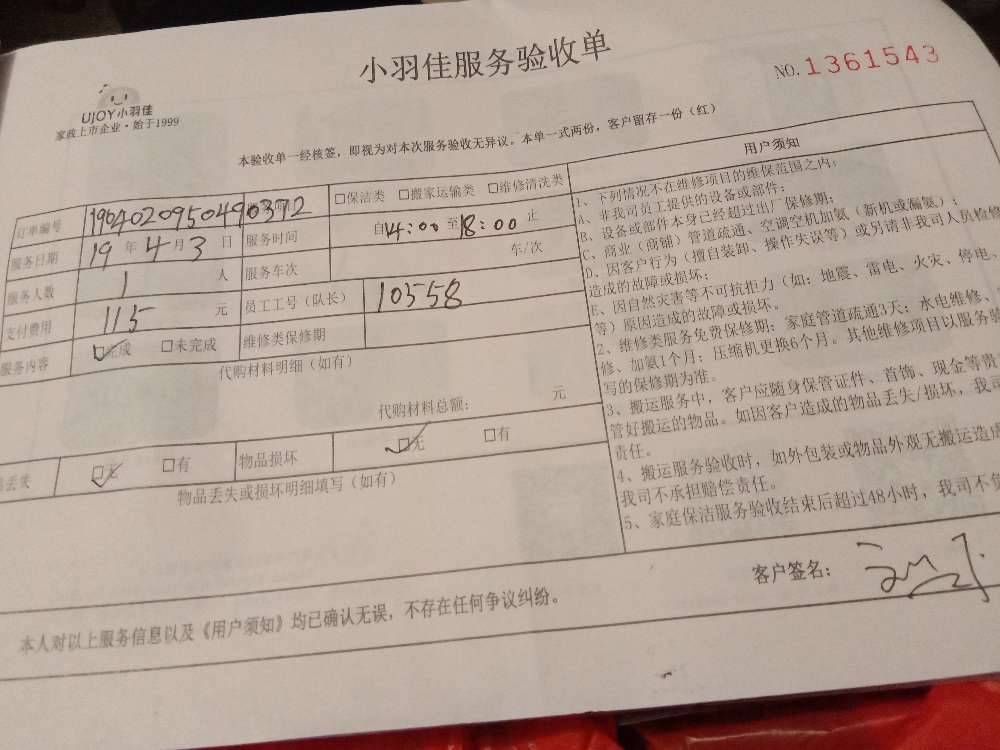 小羽佳服务验收单
NO.1361543
UJOY小羽佳
家政上市企业·始于1999
本验收单一经核签，即视为对本次服务验收无异议。本单一式两份，客户留存一份（红）
订单编号 1964020950490372 □保洁类 □搬家运输类 □维修清洗类
服务日期 19年4月3日 服务时间 自14:00至18:00止
服务人数 1人 服务车次 车/次
支付费用 115元 员工工号（队长） 10558
服务内容 □完成 □未完成 维修类保修期
代购材料明细（如有）
代购材料总额： 元
丢失 □无 □有 物品损坏 □无 □有
物品丢失或损坏明细填写（如有）
用户须知
1、下列情况不在维修项目的维保范围之内：
A、非我司员工提供的设备或部件；
B、设备或部件本身已经超过出厂保修期；
C、商业（商铺）管道疏通、空调空机加氨（新机或漏氨）；
D、因客户行为（擅自装卸、操作失误等）或另请非我司人员检修
造成的故障或损坏；
E、因自然灾害等不可抗拒力（如：地震、雷电、火灾、停电、
等）原因造成的故障或损坏。
2、维修类服务免费保修期：家庭管道疏通3天；水电维修、
修、加氨1个月；压缩机更换6个月。其他维修项目以服务验
写的保修期为准。
3、搬运服务中，客户应随身保管证件、首饰、现金等贵
管好搬运的物品。如因客户造成的物品丢失/损坏，我司
责任。
4、搬运服务验收时，如外包装或物品外观无搬运造成
我司不承担赔偿责任。
5、家庭保洁服务验收结束后超过48小时，我司不负
客户签名：
本人对以上服务信息以及《用户须知》均已确认无误，不存在任何争议纠纷。